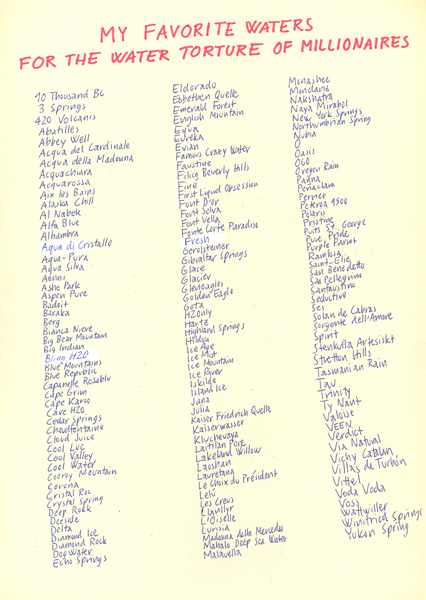 MY FAVORITE WATERS
FOR THE WATER TORTURE OF MILLIONAIRES
10 Thousand BC
3 Springs
420 Volcanis
Abatilles
Abbey Well
Acqua del Cardinale
Acqua della Madonna
Acquachiara
Acquarossa
Aix les Bains
Alaska Chill
Al Nabek
Alfa Blue
Alhambra
Aqua di Cristallo
Aqua-Pura
Aqua Silva
Aonni
Ashe Park
Aspen Pure
Badoit
Baraka
Berg
Bianca Nieve
Big Bear Mountain
Big Indian
Bling H2O
Blue Mountains
Blue Republic
Capanelle Rosablu
Cape Grim
Cape Karoo
Cave H2O
Cedar Springs
Chaudfontaine
Cloud Juice
Cool Luc
Cool Valley
Cool Water
Cooroy Mountain
Corona
Cristal Roc
Crystal Spring
Deep Rock
Deeside
Delta
Diamond Ice
Diamond Rock
Dog Water
Echo Springs
Eldorado
Ebbethen Quelle
Emerald Forest
English Mountain
Equa
Eureka
Evian
Famous Crazy Water
Faustine
Filico Beverly Hills
Finé
First Liquid Obsession
Font D'or
Font Selva
Font Vella
Fonte Corte Paradiso
Fresh
Gerolsteiner
Gibraltar Springs
Glace
Glacier
Gleneagles
Golden Eagle
Gota
H2Only
Hartz
Highland Springs
Hildon
Ice Age
Ice Mist
Ice Mountain
Ice River
Iskilde
Island Ice
Jana
Julia
Kaiser Friedrich Quelle
Kaiserwasser
Kluchevaya
Laitilan Pore
Lakeland Willow
Laoshan
Lauretana
Le Choix du Président
Lelu
Les Creus
Llanllyr
L'Oiselle
Lurisia
Madonna della Mercedes
Mahalo Deep Sea Water
Malavella
Monashee
Mondariz
Nakshatra
Naya Mirabel
New York Springs
Northumbrian Spring
Nubia
O
Oasis
OGO
Oregon Rain
Padna
Penaclara
Perrier
Peteroa 9500
Polaris
Pristine
Puits St. George
Pure Pride
Purple Parrot
Ramlosa
Saint-Elie
San Benedetto
San Pellegrino
Santaustino
Seductive
Sei
Solan de Cabras
Sorgente dell'Amore
Spirit
Stenkulla Artesiskt
Stretton Hills
Tasmanian Rain
Tau
Trinity
Ty Nant
Valoise
VEEN
Verdict
Via Natural
Vichy Catalan
Villas de Turbón
Vittel
Voda Voda
Voss
Wattwiller
Winifred Springs
Yukon Spring